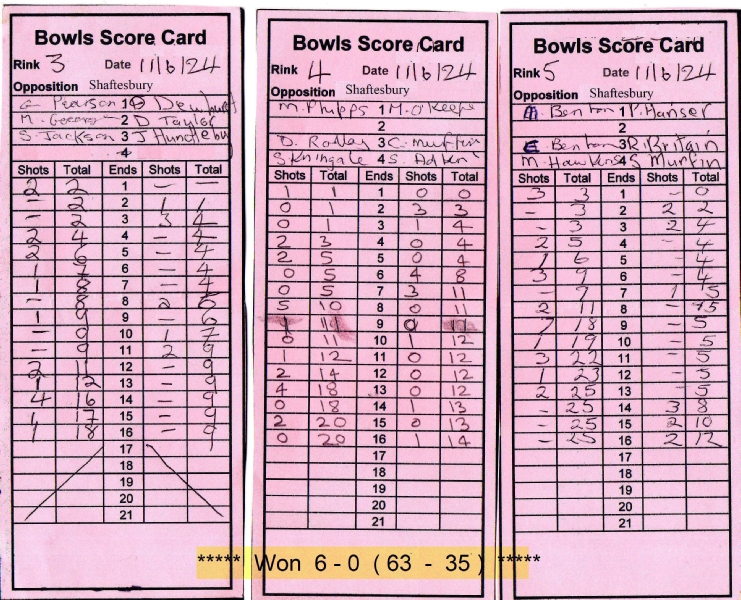 Bowls Score Card
Rink 3 Date 11/6/24
Opposition Shaftesbury
Pearson 1
M. George 2 D Taylor
S. Jackson 3 J Hundleby
4
Shots Total Ends Shots Total
2 2 1 — —
— 2 2 1 1
— 2 3 3 4
2 4 4 — 4
2 6 5 — 4
1 7 6 — 4
1 8 7 — 4
— 8 8 2 6
1 9 9 — 6
— 9 10 1 7
— 9 11 2 9
2 11 12 — 9
1 12 13 — 9
4 16 14 — 9
1 17 15 — 9
1 18 16 — 9
17
18
19
20
21
Bowls Score Card
Rink 4 Date 11/6/24
Opposition Shaftesbury
M. Phipps 1 M. O'Keefe
2
D. Rodley 3 C. Muffin
S Kningale 4 S Adken
Shots Total Ends Shots Total
1 1 1 0 0
0 1 2 3 3
0 1 3 1 4
2 3 4 0 4
2 5 5 0 4
0 5 6 4 8
0 5 7 3 11
5 10 8 0 11
1 11 9 0 11
0 11 10 1 12
1 12 11 0 12
2 14 12 0 12
4 18 13 0 12
0 18 14 1 13
2 20 15 0 13
0 20 16 1 14
17
18
19
20
21
Bowls Score Card
Rink 5 Date 11/6/24
Opposition Shaftesbury
Benton 1 P. Hanser
2
E Benton 3 R. Britain
M. Hawkins 4 S Murfin
Shots Total Ends Shots Total
3 3 1 — 0
— 3 2 2 2
— 3 3 2 4
2 5 4 — 4
1 6 5 — 4
3 9 6 — 4
— 9 7 1 5
2 11 8 — 5
7 18 9 — 5
1 19 10 — 5
3 22 11 — 5
1 23 12 — 5
2 25 13 — 5
— 25 14 3 8
— 25 15 2 10
— 25 16 2 12
17
18
19
20
21
***** Won 6 - 0 ( 63 - 35 ) *****